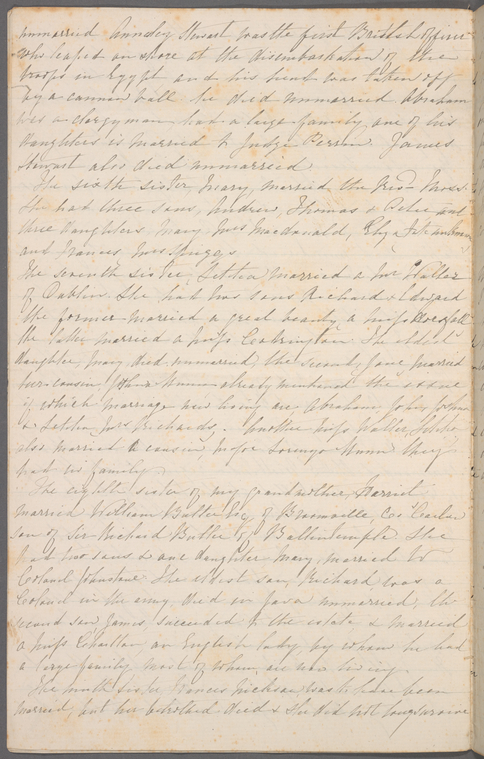 unmarried Ainsley Stewart was the first British officer
who leaped on shore at the disembarkation of the
troops in Egypt and his head was taken off
by a cannon ball he died unmarried Abraham
was a clergyman had a large family, one of his
daughters is married to Judge Perrin James
Stewart also died unmarried
The sixth sister, Mary, married the Revd
She had three sons, Andrew, Thomas & and
three daughters, Mary Mrs Macdonald,
and Frances Mrs
The seventh sister, Letitia married a Mr Waller
of Dublin. She had two sons Richard & Edward
the former married a great beauty a Miss
the latter married a Miss The eldest
daughter, Mary died unmarried, the second, Jane married
her cousin John Nunn already mentioned the issue
of which marriage now living are Abraham, John, Joshua
& Letitia Mrs Richards. Another Miss Waller, Letitia
also married a cousin Major Lorenzo Nunn they
had no family
The eighth sister of my grandmother, Harriet
married William Butler Esq of Broomville, Co. Carlow
son of Sir Richard Butler of Ballintemple She
had two sons & one daughter Mary, married to
Colonel Johnstone The eldest son, Richard, was a
Colonel in the army died in Java unmarried, the
second son, James, succeeded to the estate, & married
a Miss an English lady, by whom he had
a large family, most of whom are now living.
The ninth sister, Frances Nickson was to have been
married, but her betrothed died & she did not long survive